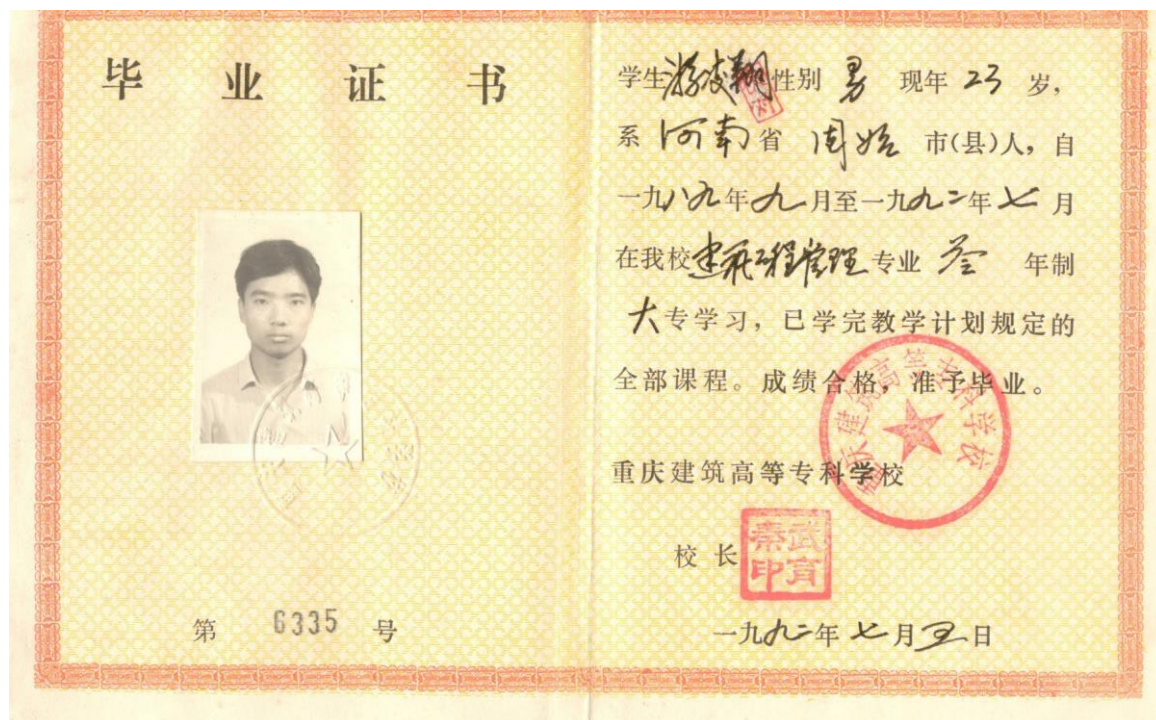 毕业证书
第 6335 号
学生游凌翔性别 男 现年 23 岁,
系 河南省 固始 市(县)人,自
一九八九年九月至一九九二年七月
在我校建筑工程管理专业 叁 年制
大专学习,已学完教学计划规定的
全部课程。成绩合格,准予毕业。
重庆建筑高等专科学校
重庆建筑高等专科学校
校长
武育秦印
一九九二年七月五日